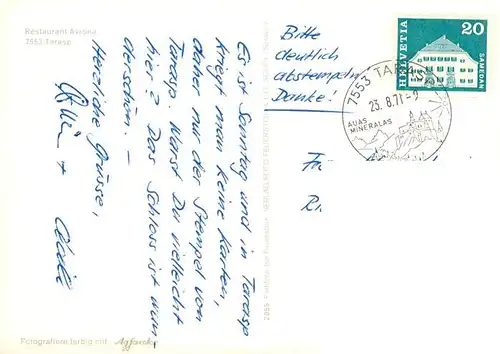 Restaurant Avrona
7553 Tarasp
Es ist Sonntag und in Tarasp
kriegt man keine Karten,
daher nur der Stempel von
Tarasp. Warst Du vielleicht
hier? Das Schloss ist wun-
derschön. –
Herzliche Grüsse,
+
Bitte
deutlich
abstempeln.
Danke!
7553 TARASP
23.8.71-9
AUAS
MINERALAS
HELVETIA
20
SAMEDAN
Fotografiere farbig mit Agfacolor